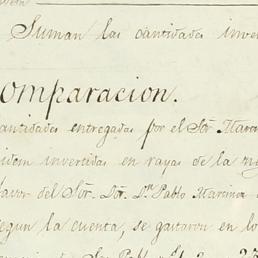 Suman las cantidades inver
omparacion.
antidades entregadas por el Sor. Marci
idem invertidas en rayas de la
favor del Sor. Dor. Dn. Pablo Martinez
segun la cuenta, se gastaron en lo